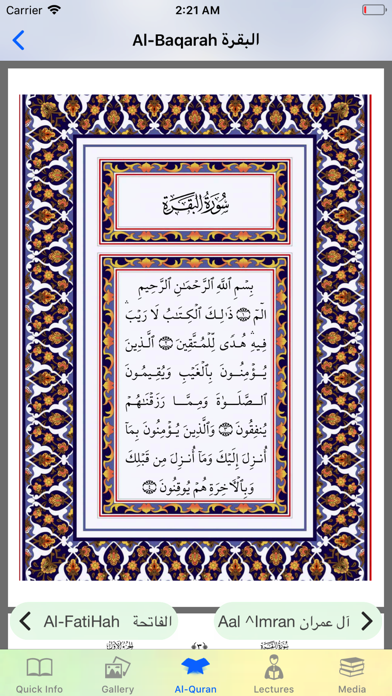 Carrier 2:21 AM
Al-Baqarah البقرة
سُورَةُ البَقَرَةِ
بِسْمِ ٱللَّهِ ٱلرَّحْمَٰنِ ٱلرَّحِيمِ
الٓمٓ ۝ ذَٰلِكَ ٱلْكِتَٰبُ لَا رَيْبَ ۛ
فِيهِ ۛ هُدًى لِّلْمُتَّقِينَ ۝ ٱلَّذِينَ
يُؤْمِنُونَ بِٱلْغَيْبِ وَيُقِيمُونَ
ٱلصَّلَوٰةَ وَمِمَّا رَزَقْنَٰهُمْ
يُنفِقُونَ ۝ وَٱلَّذِينَ يُؤْمِنُونَ بِمَآ
أُنزِلَ إِلَيْكَ وَمَآ أُنزِلَ مِن قَبْلِكَ
وَبِٱلْءَاخِرَةِ هُمْ يُوقِنُونَ ۝
Al-FatiHah الفاتحة
Aal ^Imran آل عمران
﴿٣﴾
Quick Info
Gallery
Al-Quran
Lectures
Media